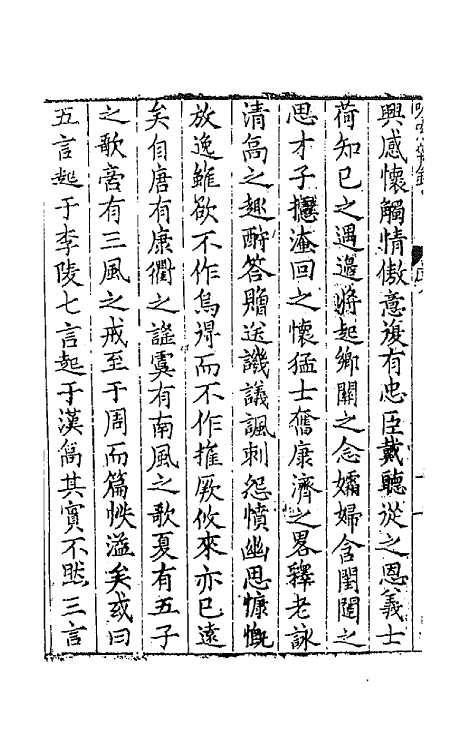 興感懷觸情傲意復有忠臣戴聽從之恩義士
荷知已之遇邉將起鄉關之念孀婦含閨闥之
思才子攄淹回之懷猛士奮康濟之畧釋老詠
清高之趣酧答贈送譏議諷刺怨憤幽思慷慨
放逸雖欲不作烏得而不作推厥攸來亦已遠
矣自唐有康衢之謡虞有南風之歌夏有五子
之歌啇有三風之戒至于周而篇帙溢矣或曰
五言起于李陵七言起于漢武其實不然三言